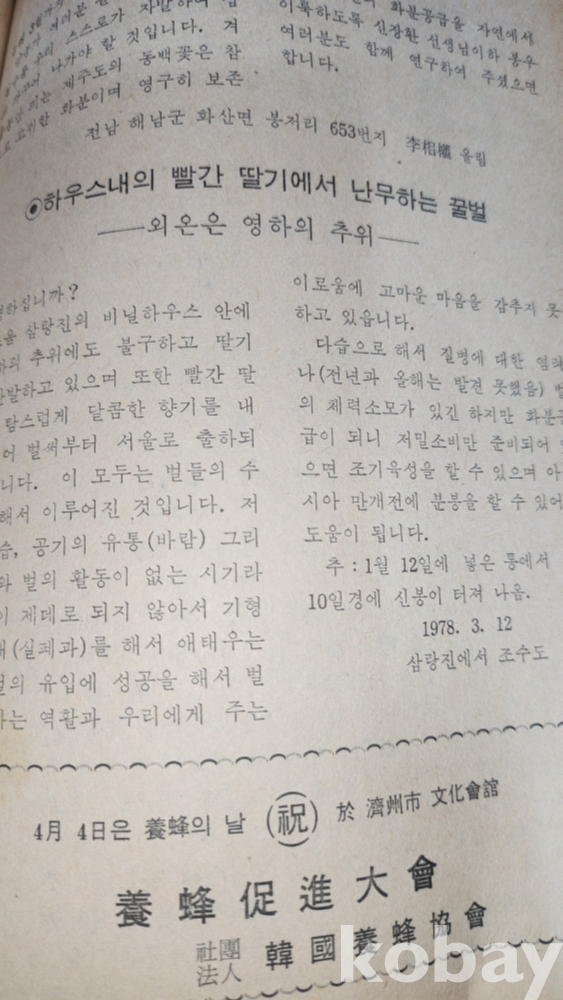 여러분
우리 스스로가 자발하여
나가야 할 것입니다. 겨
피는 제주도의 동백꽃은 참
고귀한 화분이며 영구히 보존
화분공급을 자연에서
이룩하도록 신장환 선생님이하 봉우
여러분도 함께 연구하여 주셨으면
합니다.
전남 해남군 화산면 봉저리 653번지 李相 올림
◉하우스내의 빨간 딸기에서 난무하는 꿀벌
──외온은 영하의 추위──
하십니까?
삼랑진의 비닐하우스 안에
추위에도 불구하고 딸기
만발하고 있으며 또한 빨간 딸
탐스럽게 달콤한 향기를 내
어 벌써부터 서울로 출하되
니다. 이 모두는 벌들의 수
해서 이루어진 것입니다. 저
습, 공기의 유통(바람) 그리
와 벌의 활동이 없는 시기라
이 제대로 되지 않아서 기형
(실패과)를 해서 애태우는
벌의 유입에 성공을 해서 벌
하는 역활과 우리에게 주는
이로움에 고마운 마음을 감추지 못
하고 있읍니다.
다습으로 해서 질병에 대한 염려
나(전년과 올해는 발견 못했음) 벌
의 체력소모가 있긴 하지만 화분공
급이 되니 저밀소비만 준비되어 있
으면 조기육성을 할 수 있으며 아
시아 만개전에 분봉을 할 수 있어
도움이 됩니다.
추 : 1월 12일에 넣은 통에서
10일경에 신봉이 터져 나음.
1978. 3. 12
삼랑진에서 조수도
4月 4日은 養蜂의 날 (祝) 於 濟州市 文化會館
養蜂促進大會
社團法人 韓國養蜂協會
kobay